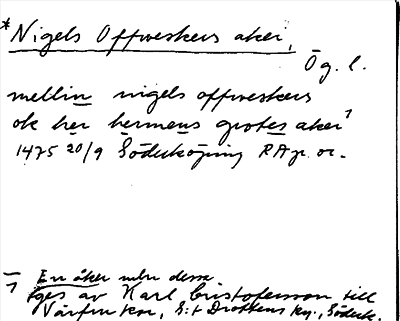 *Nigels Offweskers aker,
Ög. l.
mellin nigels offweskers
ok her hermens grotes aker¹
1475 20/9 Söderköping RAp. or.
¹ En åker mln dessa
ges av Karl Cristofersson till
Vårfrukor, S:t Drottens ky., Söderk.